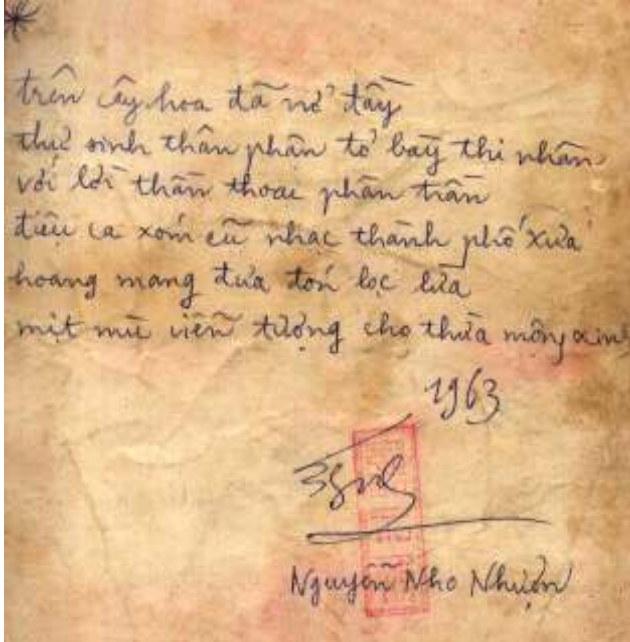 trên cây hoa đã nở đầy
thuở sinh thân phận tỏ bày thi nhân
với lời thần thoại phân trần
điệu ca xóm cũ nhạc thành phố xưa
hoang mang đưa đón lọc lừa
mịt mù viễn tượng cho thừa mộng xin
1963
Nguyễn Nho Nhượn